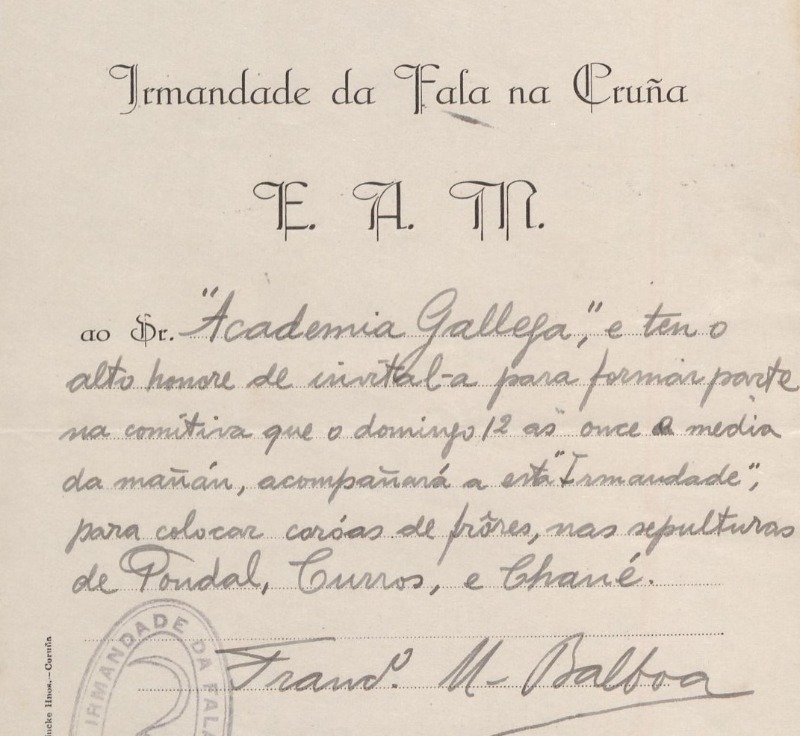 Irmandade da Fala na Cruña
E. A. M.
ao Sr. "Academia Gallega", e ten o
alto honore de invital-a para formar parte
na comitiva que o domingo 12 as once e media
da mañán, acompañará a esta "Irmandade",
para colocar coróas de frôres, nas sepulturas
de Pondal, Curros, e Chané.
Franco. M- Balboa
IRMANDADE DA FALA
Hnos.-Coruña